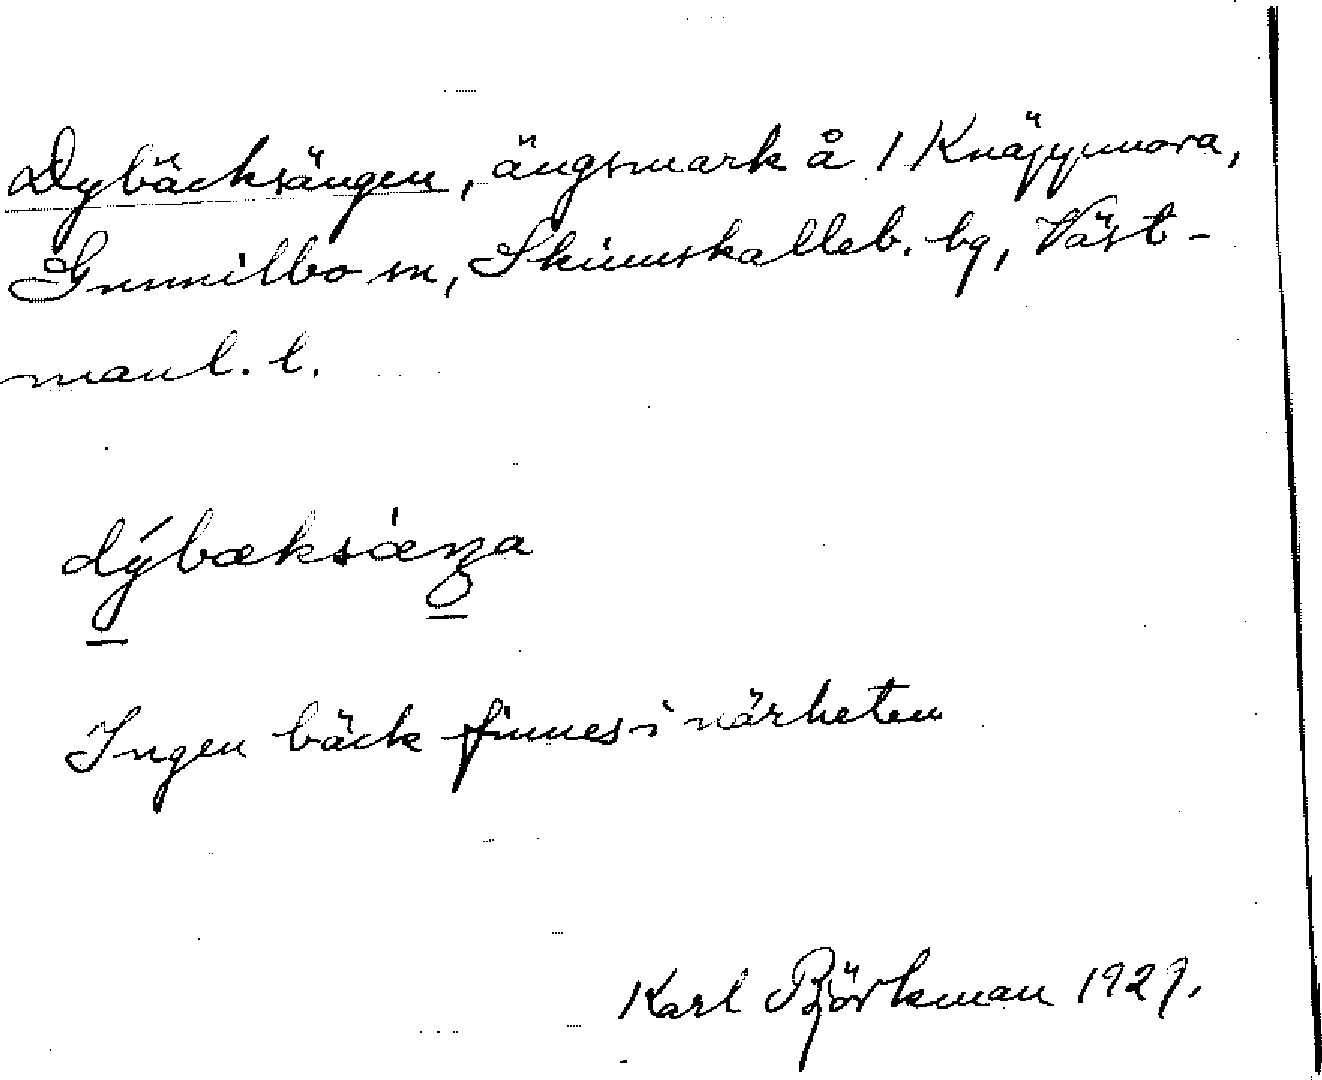 Dybäcksängen, ängsmark å 1 Knäppmora,
Gunnilbo sn, Skinnskatteb. bg, Väst-
manl. l.
dýbæksæŋa
Ingen bäck finnes i närheten
Karl Björkman 1929.